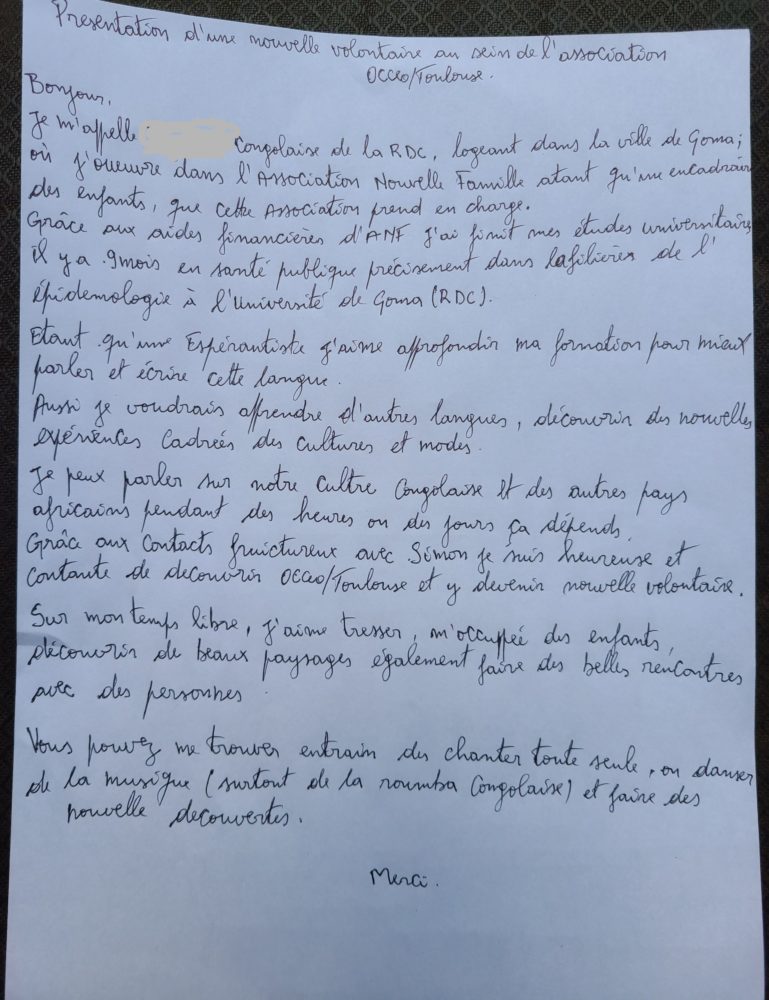 Presentation d'une nouvelle volontaire au sein de l'association
OCCEO/Toulouse.
Bonjour,
Je m'appelle Congolaise de la RDC, logeant dans la ville de Goma;
où j'oueuvre dans l'Association Nouvelle Famille atant qu'une encadrair
des enfants, que cette Association prend en charge.
Grâce aux aides financières d'ANF j'ai finit mes études universitaires
il y a 9mois en santé publique précisement dans lafilières de l'
épidemologie à l'université de Goma (RDC).
Etant qu'une Espérantiste j'aime approfondir ma formation pour mieux
parler et écrire cette langue.
Aussi je voudrais apprendre d'autres langues, découvrir des nouvelles
expériences Cadreés des cultures et modes.
Je peux parler sur notre Cultre Congolaise Et des autres pays
africains pendant des heures ou des jours ça dépends.
Grâce aux Contacts fruictureux avec Simon je suis heureuse et
Contante de decouvrir OCCEO/Toulouse et y devenir nouvelle volontaire.
Sur mon temps libre, j'aime tresser, m'occupée des enfants,
découvrir de beaux paysages également faire des belles rencontres
avec des personnes.
Vous pouvez me trouver entraim des chanter toute seule, ou danser
de la musique (surtout de la roumba Congolaise) et faire des
nouvelle decouvertes.
Merci.